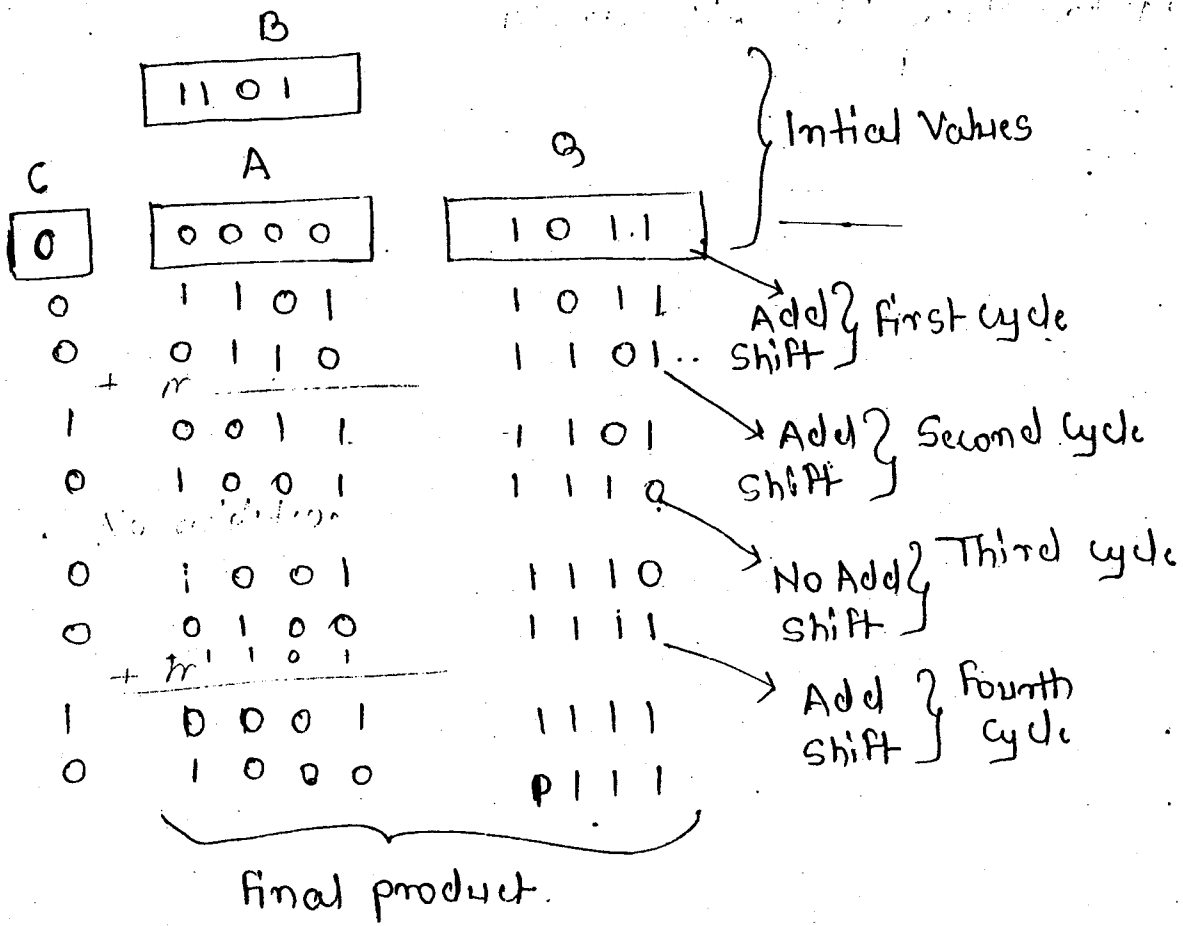 B
1 1 0 1
C A Q
0 0 0 0 0 1 0 1 1 } Intial Values
0 1 1 0 1 1 0 1 1 Add } First cycle
0 0 1 1 0 1 1 0 1 Shift
+
1 0 0 1 1 1 1 0 1 Add } Second cycle
0 1 0 0 1 1 1 1 0 Shift
0 1 0 0 1 1 1 1 0 No Add } Third cycle
0 0 1 0 0 1 1 1 1 Shift
+ 1 1 0 1
1 0 0 0 1 1 1 1 1 Add } Fourth cycle
0 1 0 0 0 1 1 1 Shift
Final product.